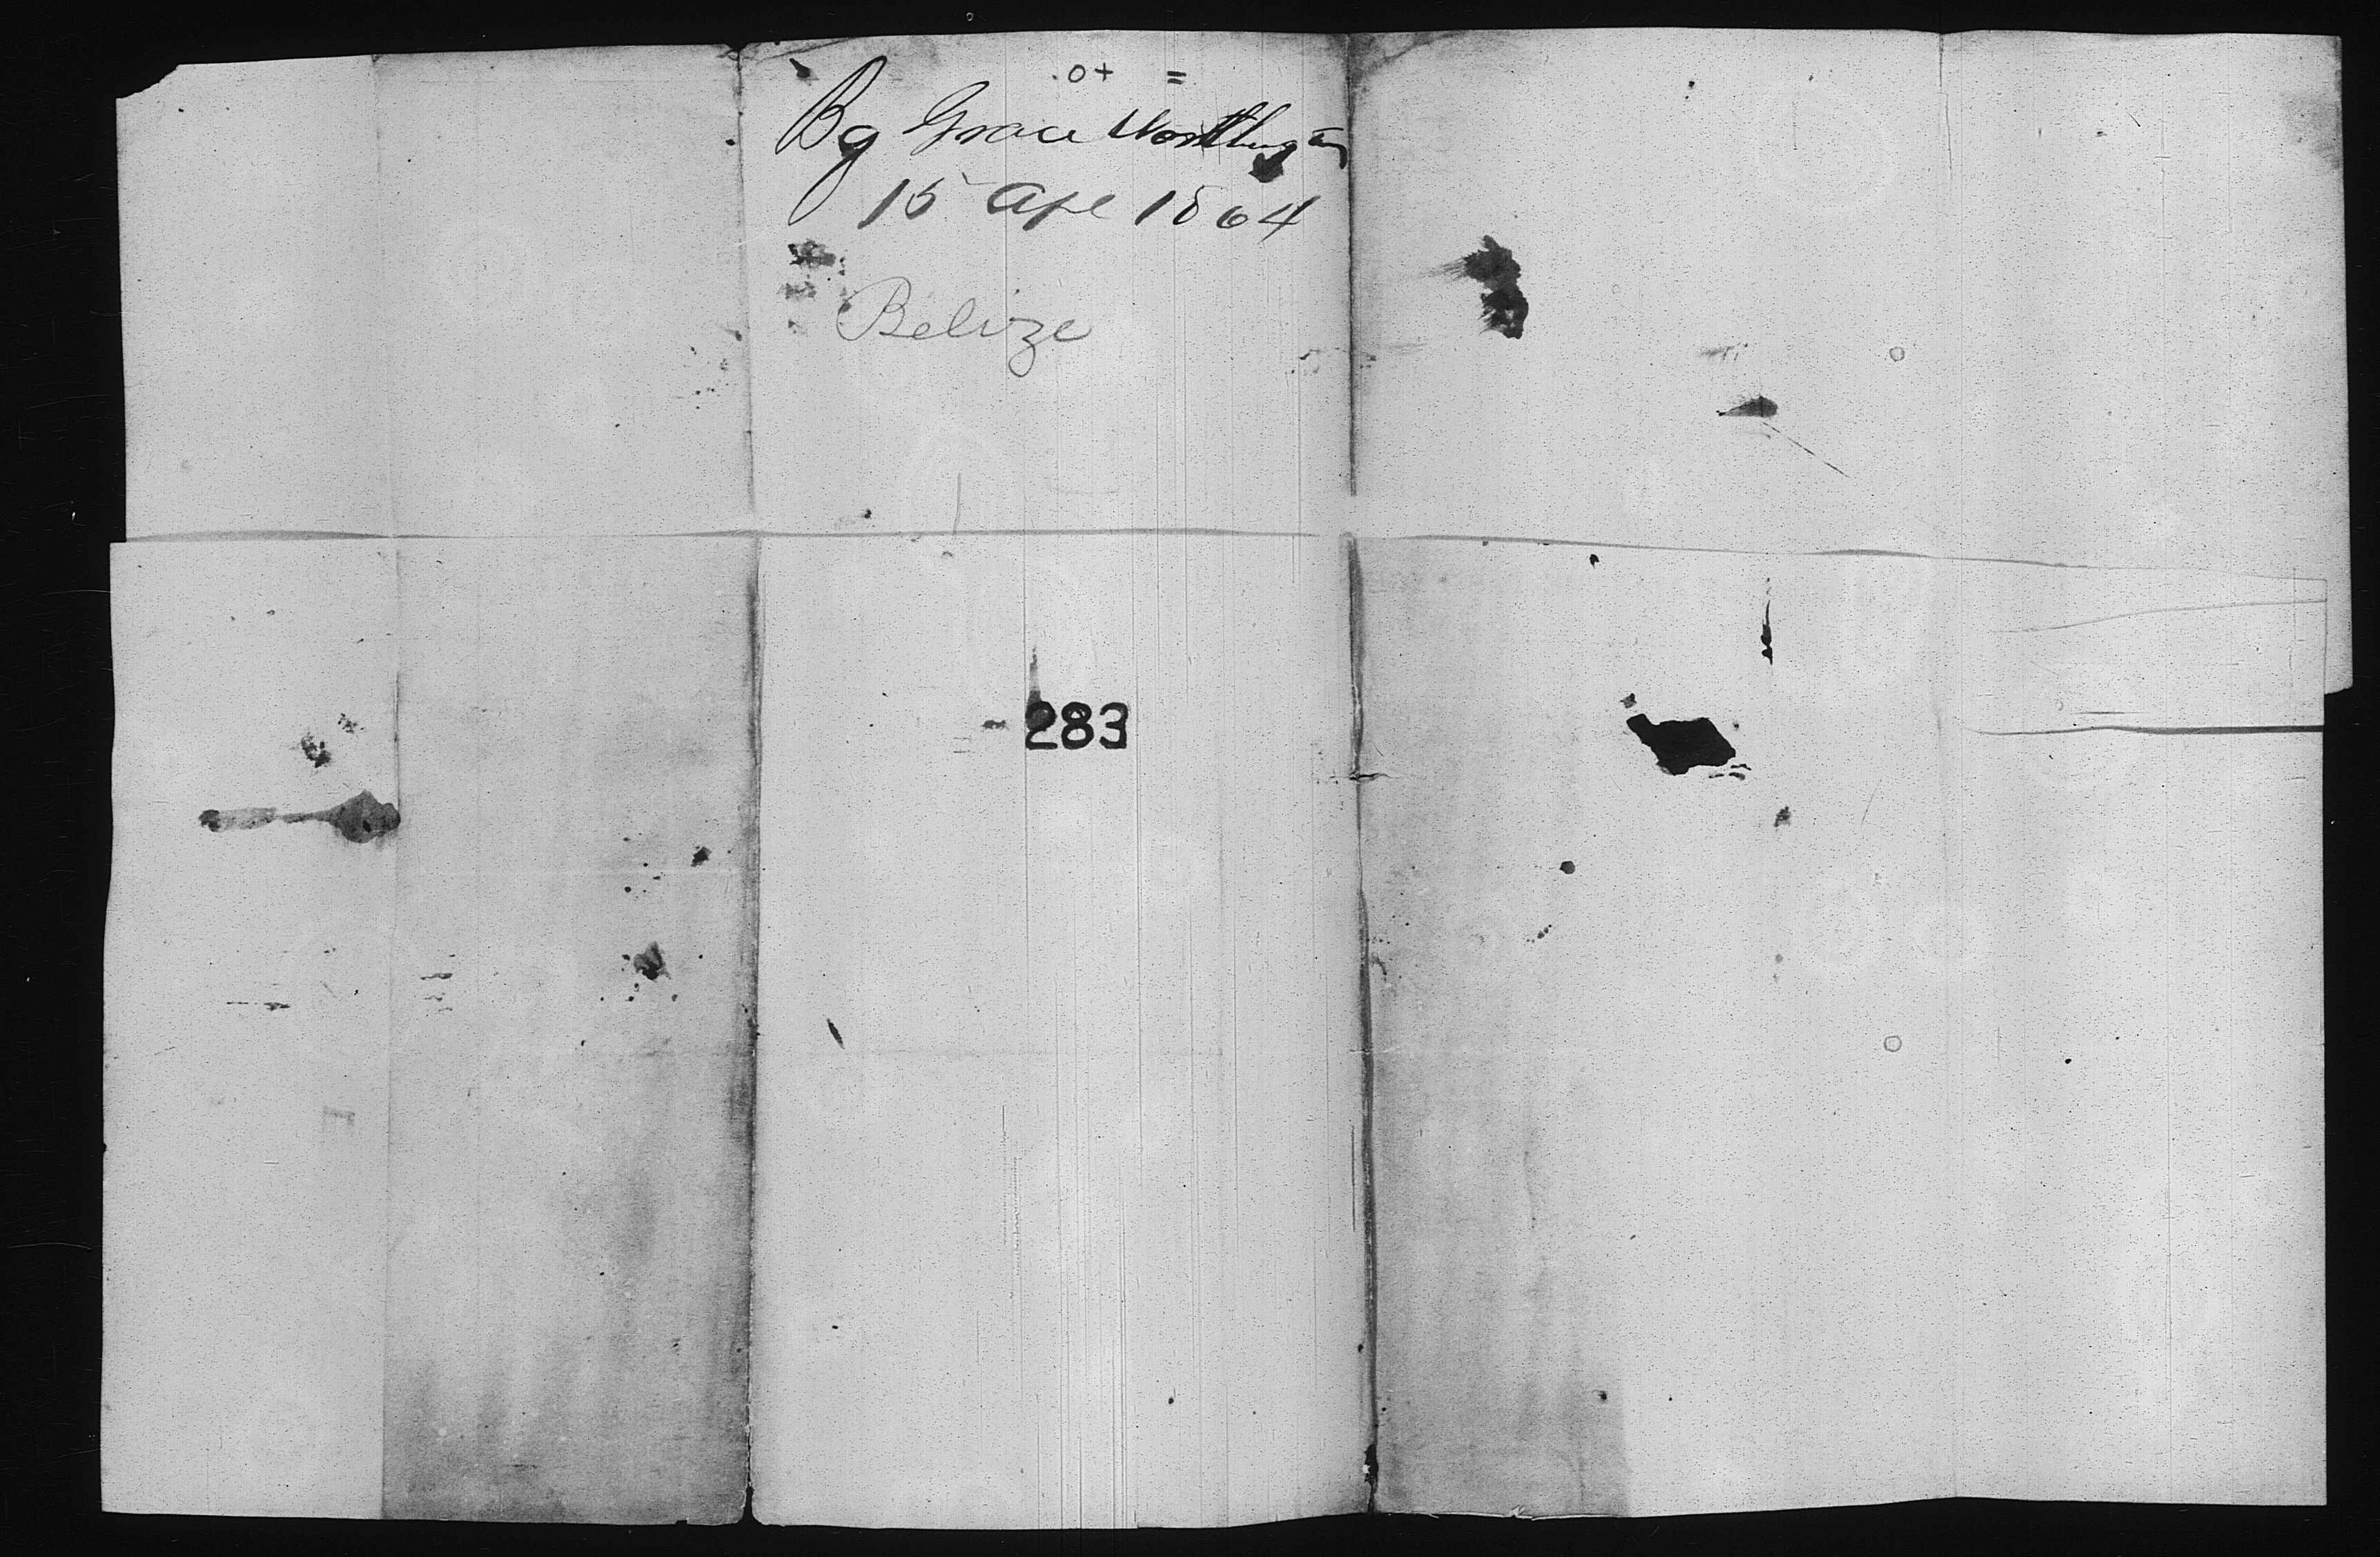 o+ =
Bg Grace Worthington
15 Apl 1864
Belize
283